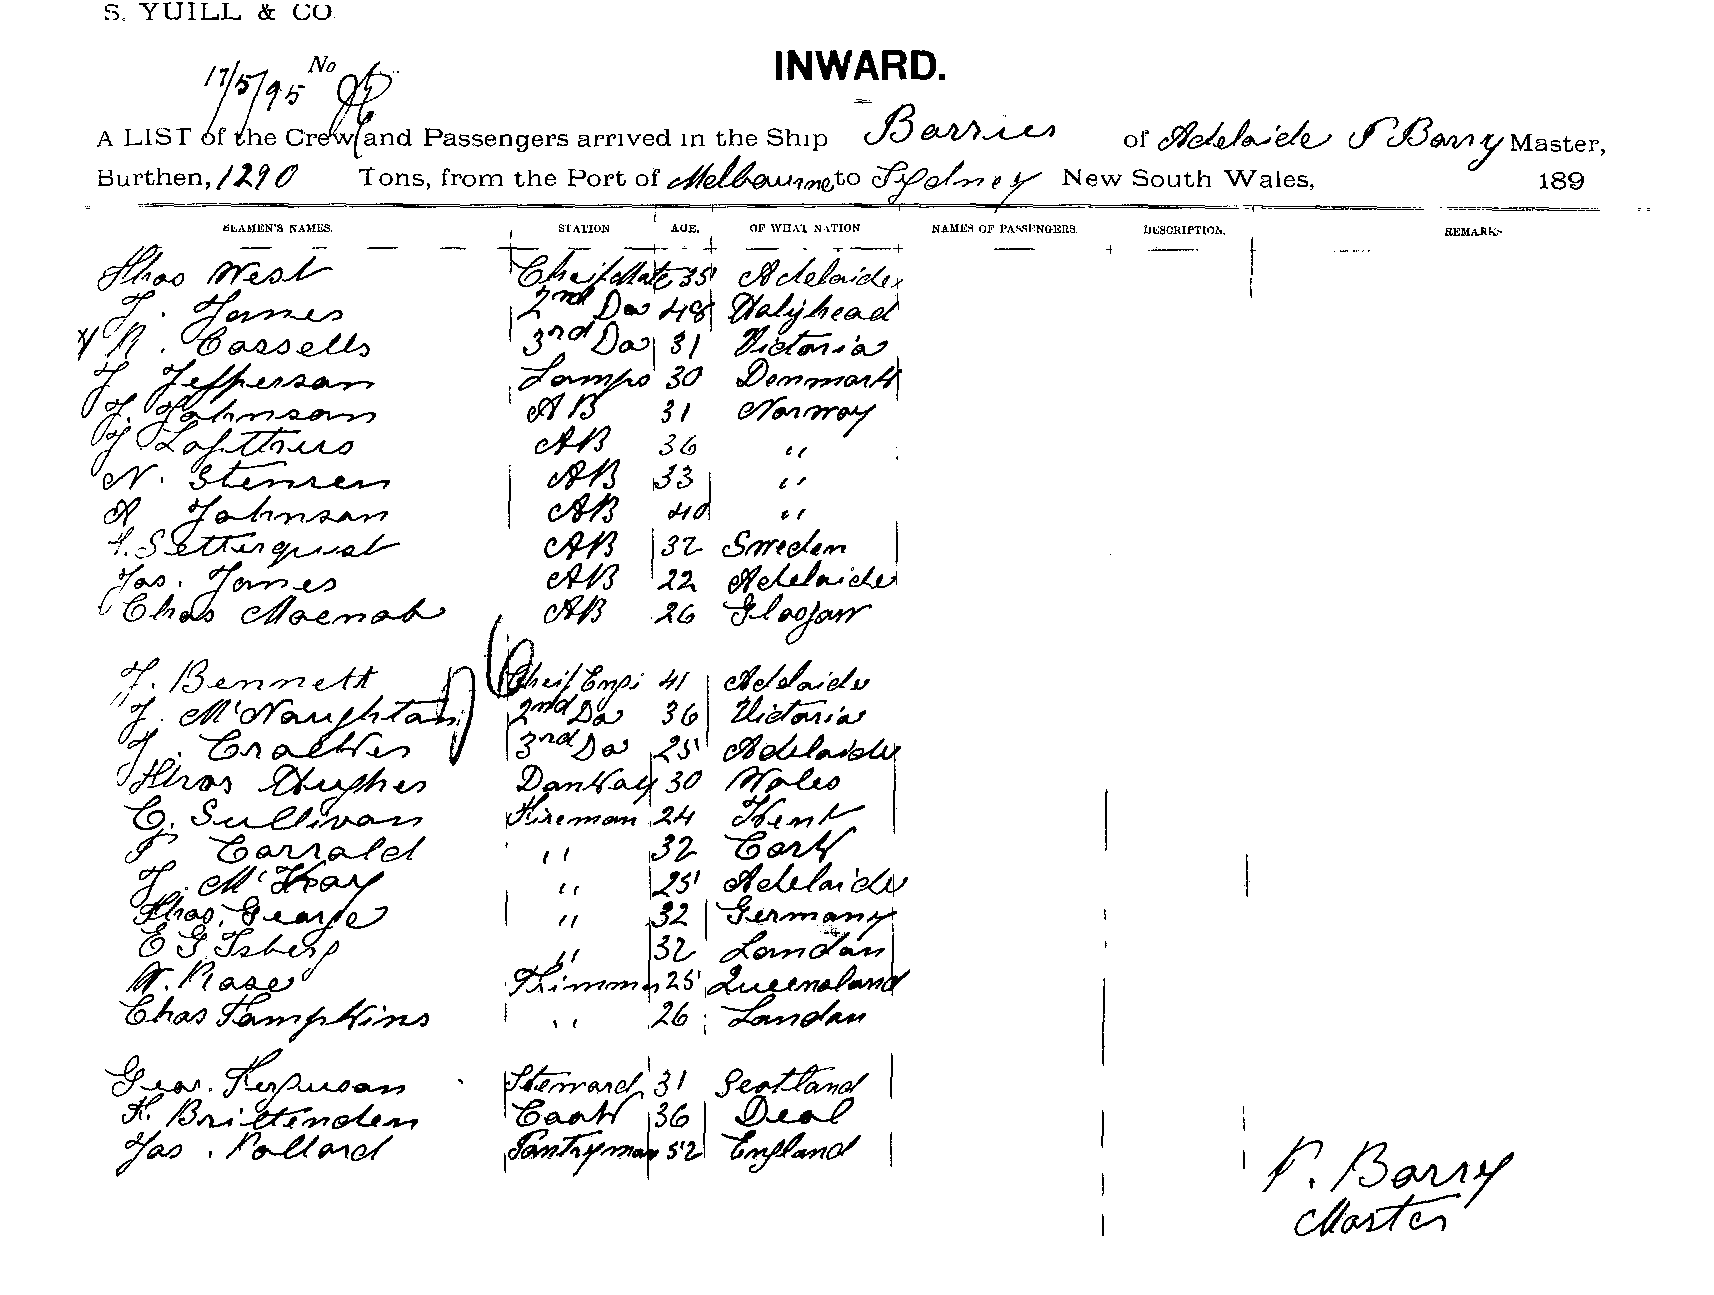 S. YUILL & CO
17/5/95 No
INWARD.
A LIST of the Crew and Passengers arrived in the Ship Barrier of Adelaide P Barry Master,
Burthen, 1290 Tons, from the Port of Melbourne to Sydney New South Wales, 189
SEAMEN'S NAMES. STATION AGE. OF WHAT NATION NAMES OF PASSENGERS. DESCRIPTION. REMARKS
Thos West Cheif Mate 35 Adelaide
J. James 2nd Do 48 Holyhead
R. Cassells 3rd Do 31 Victoria
J Jefferson Lamps 30 Denmark
J. Johnson AB 31 Norway
J Lofthus AB 36 "
N. Stensen AB 33 "
A Johnson AB 40 "
Setterquist AB 32 Sweden
Jas. James AB 22 Adelaide
Chas Macnab AB 26 Glasgow
J. Bennett Cheif Engi 41 Adelaide
J. McNaughtan 2nd Do 36 Victoria
J. Cralker 3rd Do 25 Adelaide
Thos Hughes Donkey 30 Wales
C. Sullivan Fireman 24 Kent
P Carrald " 32 Cork
J. McKay " 25 Adelaide
Thos. George " 32 Germany
E G Isberg " 32 London
W. Rose Trimmer 25 Queensland
Chas Tompkins " 26 London
Geor. Ferguson Steward 31 Scotland
F. Brittenden Cook 36 Deal
Jas. Pollard Pantryman 52 England
P. Barry
Master